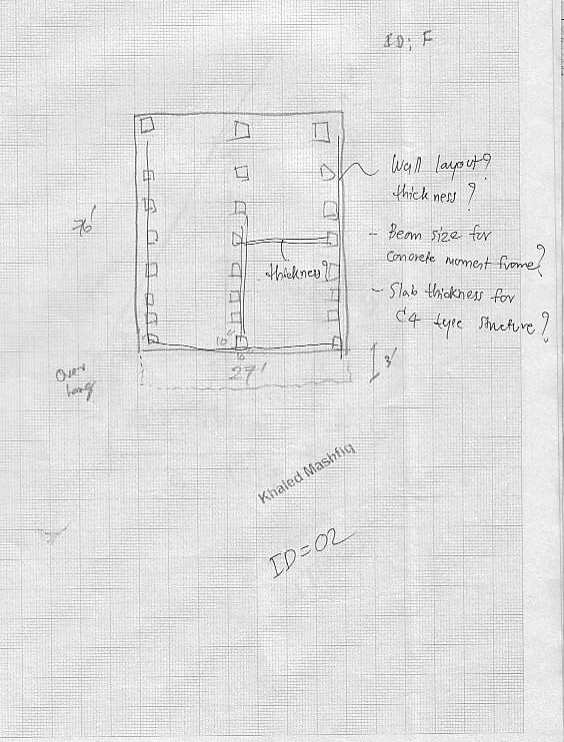 ID; F
Wall layout?
thickness?
- Beam size for
concrete moment frame?
- Slab thickness for
C4 type structure?
76'
thickness?
10"
10"
27'
3'
Over
hang
Khaled Mashfiq
ID=02